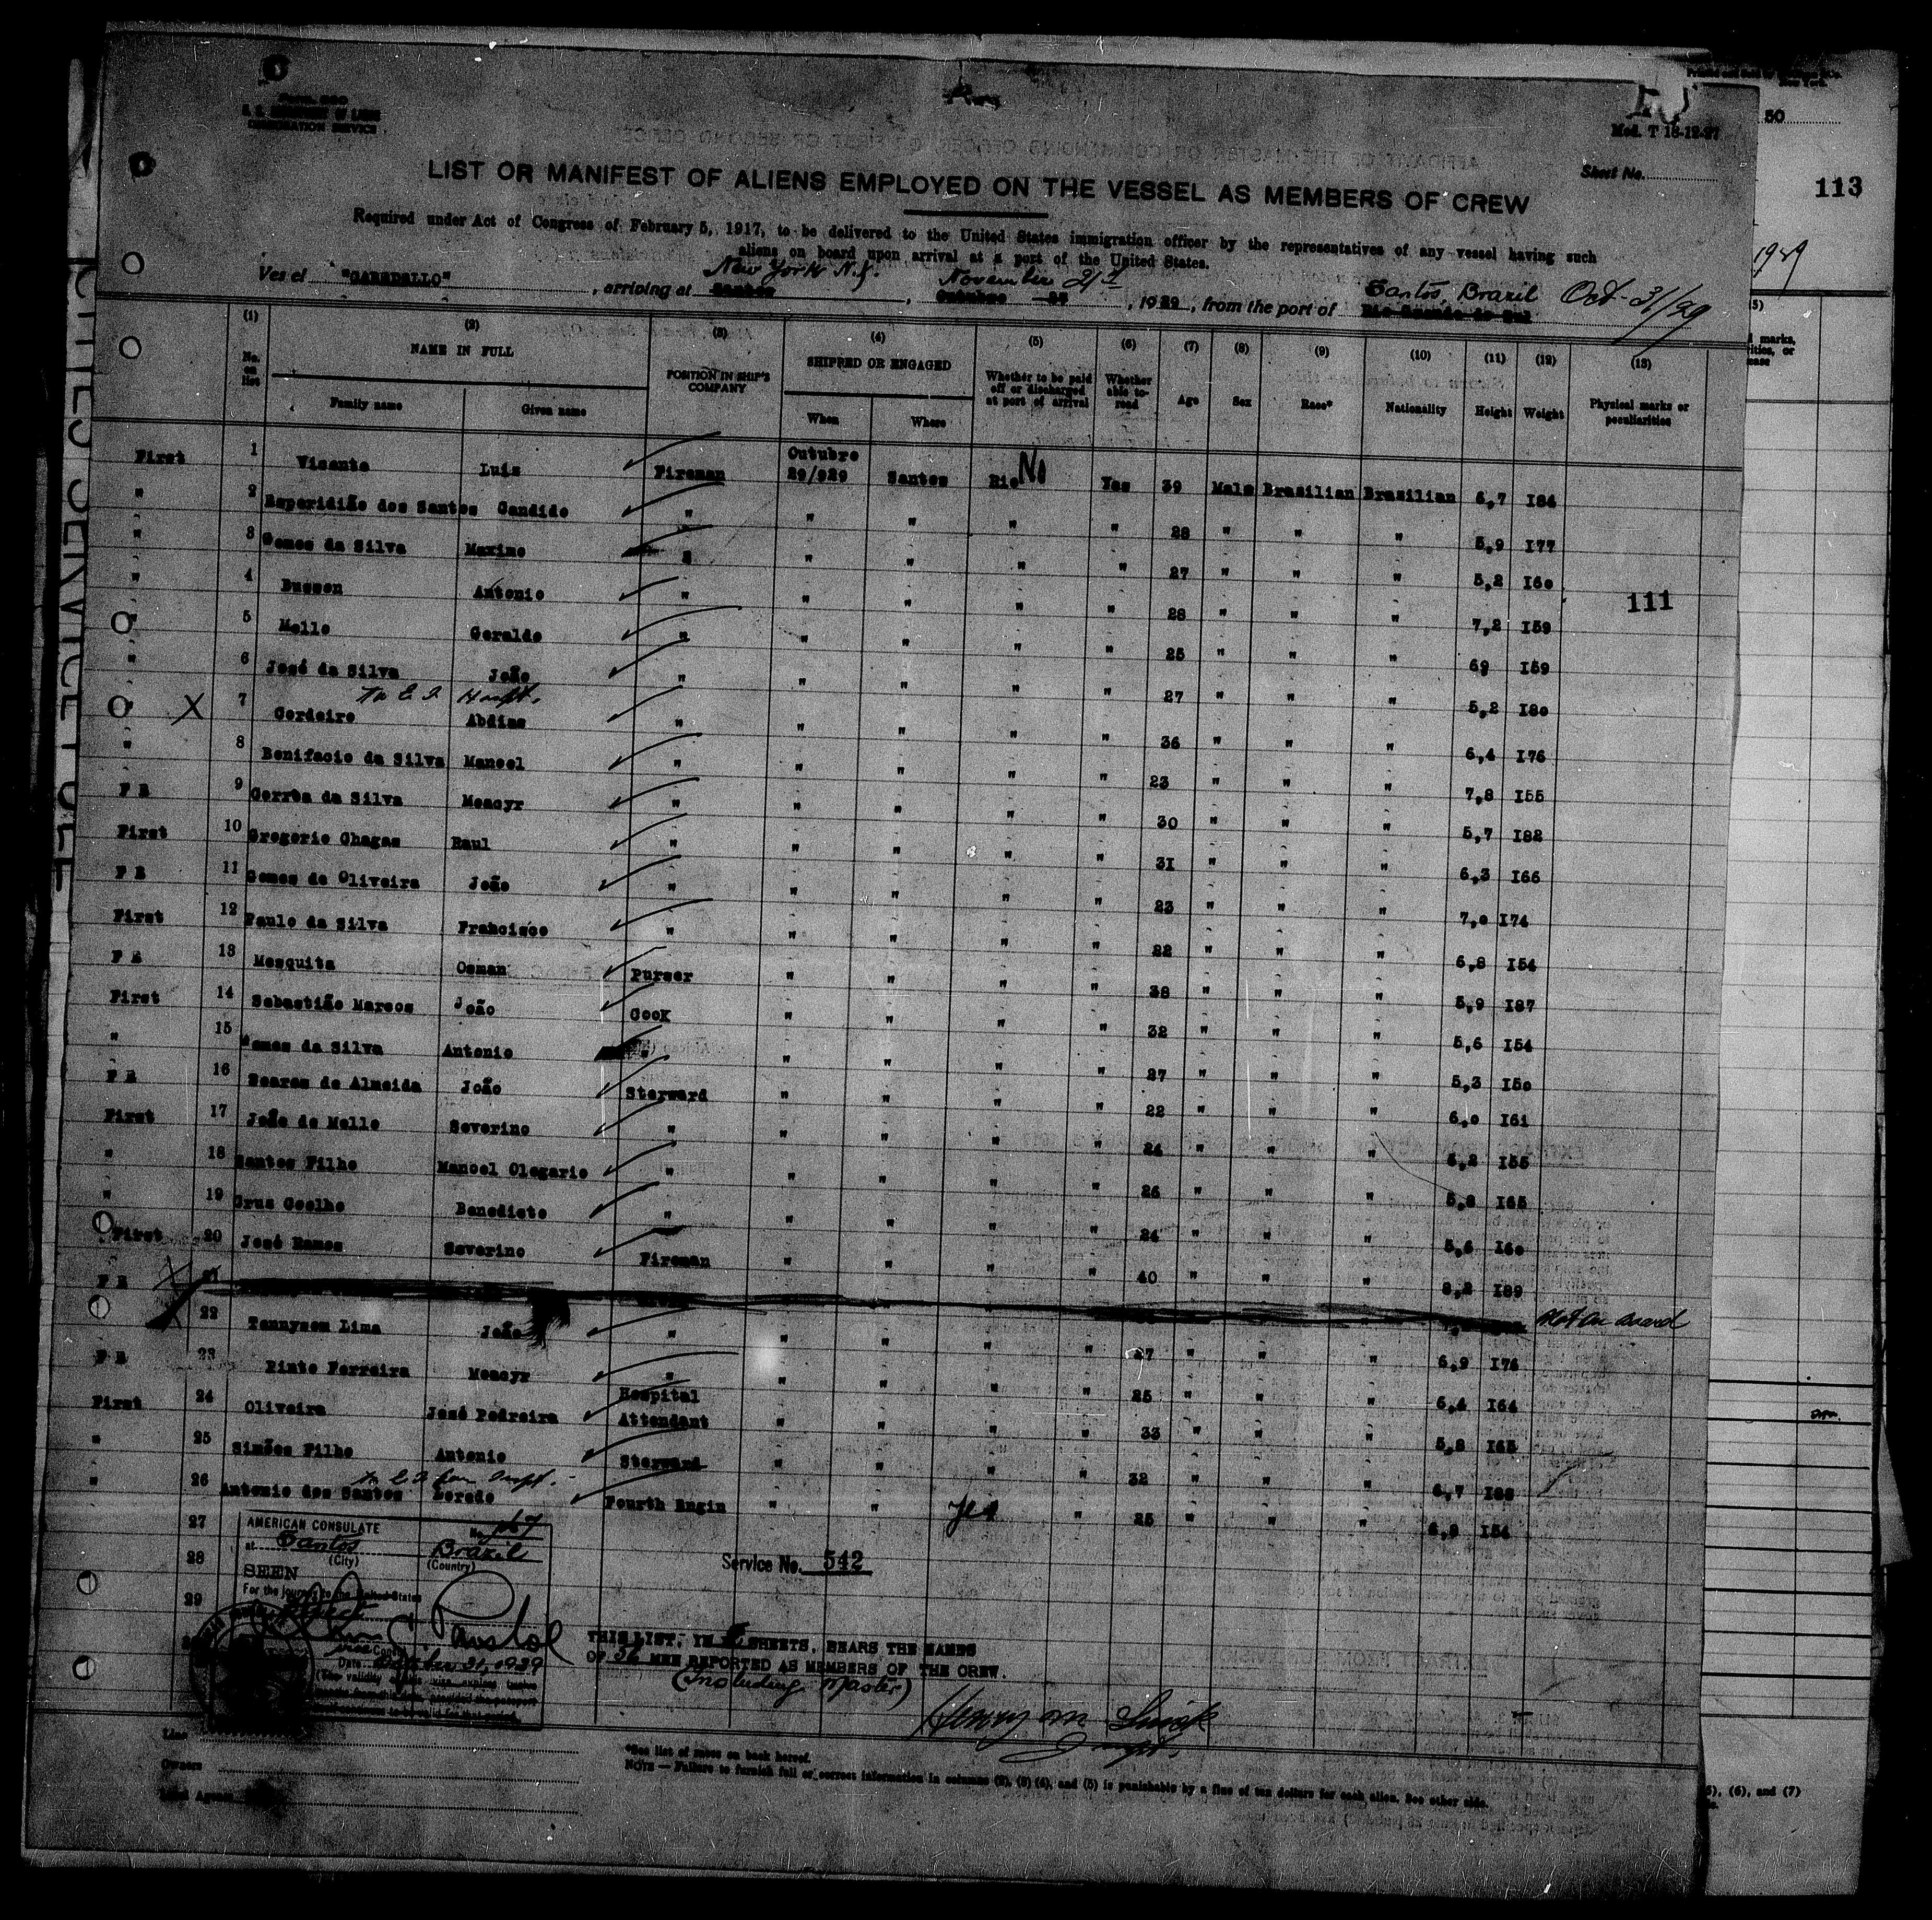 Form 680
U. S. DEPARTMENT OF LABOR
IMMIGRATION SERVICE
Mod. T 18-12-27
Sheet No.
50
113
LIST OR MANIFEST OF ALIENS EMPLOYED ON THE VESSEL AS MEMBERS OF CREW
Required under Act of Congress of February 5, 1917, to be delivered to the United States immigration officer by the representatives of any vessel having such
aliens on board upon arrival at a port of the United States.
Vessel "CABEDELLO", arriving at Santos New York N.Y., Outubro 29 November 21st, 1929, from the port of Rio Grande do Sul Santos, Brazil Oct-31/29
(1) (2) (3) (4) (5) (6) (7) (8) (9) (10) (11) (12) (13)
No. on list NAME IN FULL POSITION IN SHIP'S COMPANY SHIPPED OR ENGAGED Whether to be paid off or discharged at port of arrival Whether able to read Age Sex Race* Nationality Height Weight Physical marks or peculiarities
Family name Given name When Where
First 1 Vicente Luis Fireman Outubro 29/929 Santos Rio No Yes 39 Male Brasilian Brasilian 6,7 I84
" 2 Esperidião dos Santos Candido " " " " " 28 " " " 5,9 I77
" 3 Gomes da Silva Maximo " " " " " 27 " " " 5,2 I60
" 4 Bussen Antonio " " " " " 28 " " " 7,2 I59
111
" 5 Mello Geraldo " " " " " 25 " " " 69 I59
" 6 José da Silva João " " " " " 27 " " " 5,2 I80
" X 7 Cordeiro Abdias " " " " " 36 " " " 6,4 I76
" 8 Bonifacio da Silva Manoel " " " " " 23 " " " 7,8 I55
P R 9 Corrêa da Silva Moacyr " " " " " 30 " " " 5,7 I82
First 10 Gregorio Chagas Raul " " " " " 31 " " " 6,3 I66
P R 11 Gomes de Oliveira João " " " " " 23 " " " 7,0 I74
First 12 Paulo da Silva Francisco " " " " " 22 " " " 6,8 I54
P R 13 Mesquita Osman Purser " " " " 38 " " " 5,9 I87
First 14 Sebastião Marcos João Cook " " " " 32 " " " 5,6 I54
" 15 Gomes da Silva Antonio " " " " 27 " " " 5,3 I50
P R 16 Soares de Almeida João Sterward " " " " 22 " " " 6,0 I61
First 17 João de Mello Severino " " " " " 24 " " " 6,2 I55
" 18 Santos Filho Manoel Olegario " " " " " 26 " " " 5,8 I65
" 19 Cruz Coelho Benedicto " " " " " 24 " " " 5,6 I60
First 20 José Ramos Severino Fireman " " " " 40 " " " 8,2 I89
P R X 21 Not on board
22 Tennyson Lima João " " " " " 27 " " " 6,9 I76
P R 23 Pinto Ferreira Moacyr " " " " " 25 " " " 6,4 I64
First 24 Oliveira José Pedreira Hospital Attendant " " " " 33 " " " 5,8 I65
" 25 Simões Filho Antonio Sterward " " " " 32 " " " 6,7
" 26 Antonio dos Santos Fourth Engin " " Yes " 25 " " " I54
27
28
29
AMERICAN CONSULATE No. 167
at Santos Brazil
(City) (Country)
SEEN
For the journey to the United States
Date October 31, 1929
Service No. 542
THIS LIST, IN SHEETS, BEARS THE NAMES
OF 36 MEN REPORTED AS MEMBERS OF THE CREW.
(Including Master)
Line
Owners
Local Agents
*See list of races on back hereof.
NOTE — Failure to furnish full or correct information in columns (2), (3) (4), and (5) is punishable by a fine of ten dollars for each alien. See other side.